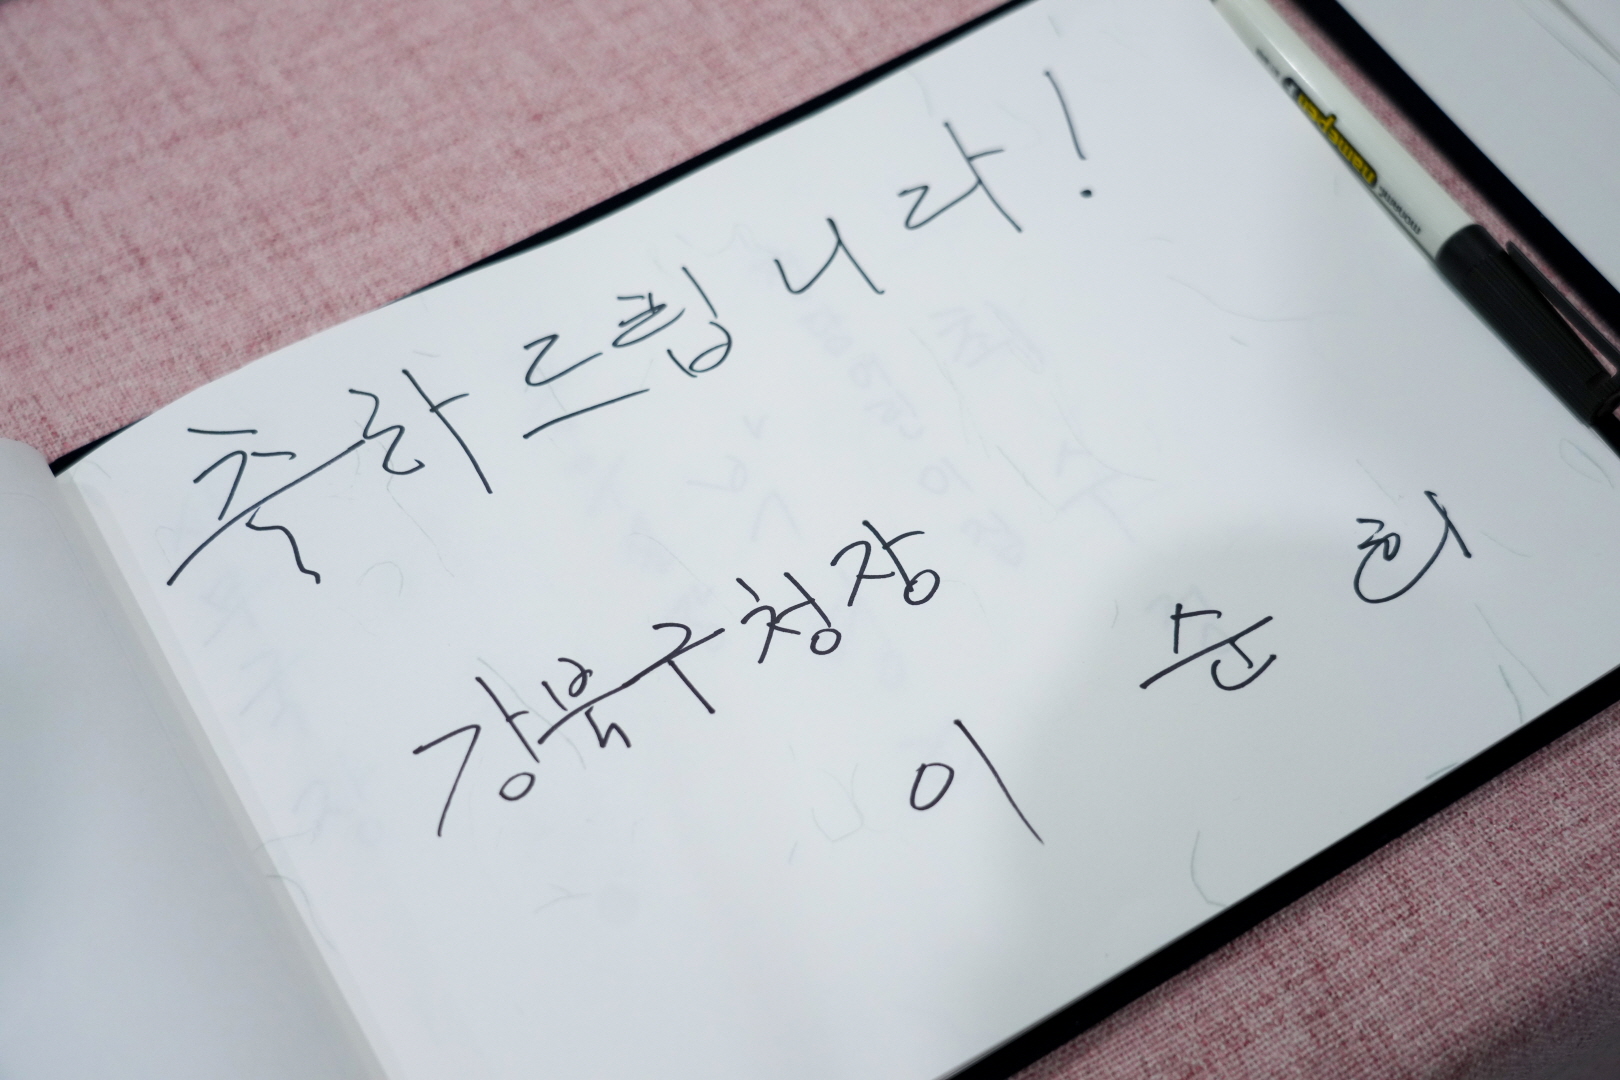 축하 드립니다!
강북구청장
이 순 희
namepen
monami